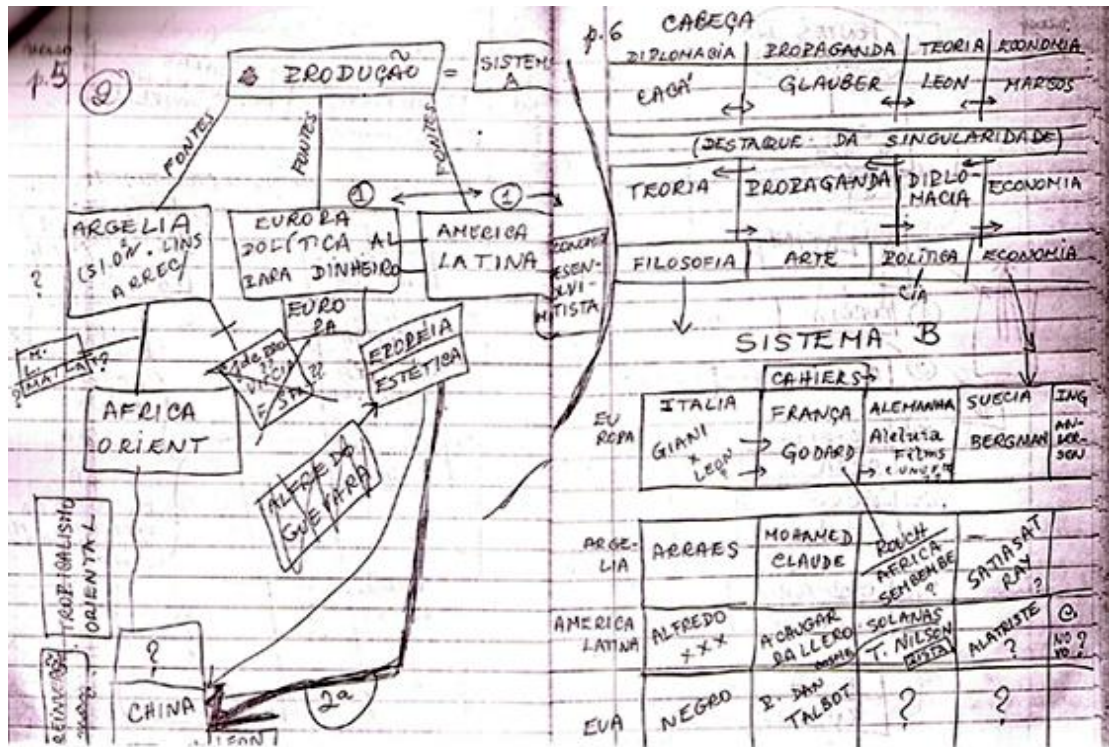 p.5
2
PRODUÇÃO = SISTEMA
A
FONTES
FONTES
FONTES
1
1
ARGELIA
(SION. LINS
ARREC)
?
EUROPA
POLÍTICA AL
PARA DINHEIRO
AMERICA
LATINA
EURO
PA
EPOPEIA
ESTÉTICA
L.M.
MATLA
?
?
AFRICA
ORIENT
ALFREDO
GUEVARA
TROPICALISMO
ORIENTAL
?
CHINA
2a
LEON
p.6
CABEÇA
DIPLOMACIA PROPAGANDA TEORIA ECONOMIA
CACÁ GLAUBER LEON MARCOS
(DESTAQUE DA SINGULARIDADE)
TEORIA PROPAGANDA DIPLO-
MACIA ECONOMIA
FILOSOFIA ARTE POLÍTICA ECONOMIA
CIA
SISTEMA B
CAHIERS
EU
ROPA
ITALIA FRANÇA ALEMANHA SUECIA ING
GIANI
x
LEON
GODARD
Aleluia
Films
??
BERGMAN
AN-
DER-
SON
ARGE-
LIA
ARRAES
MOHAMED
CLAUDE
ROUCH
AFRICA
SEMBENBE
?
SATIASAT
RAY
?
AMERICA
LATINA
ALFREDO
x x x
SOLANAS
T. NILSON
ALATRISTE
?
NO ?
EUA
NEGRO
P. DAN
TALBOT
?
?